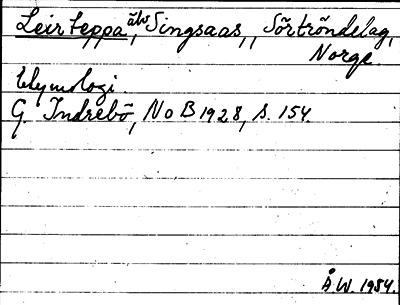 Leirteppa, älv Singsaas, Sörtröndelag,
Norge.
Etymologi.
G. Indrebö, NoB 1928, s. 154.
Å.W. 1984.